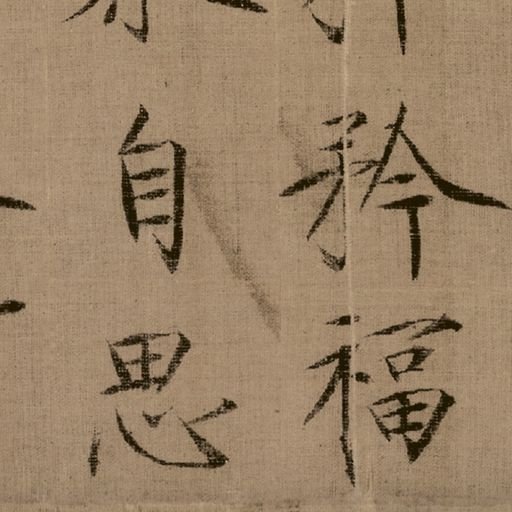 矜福
自思